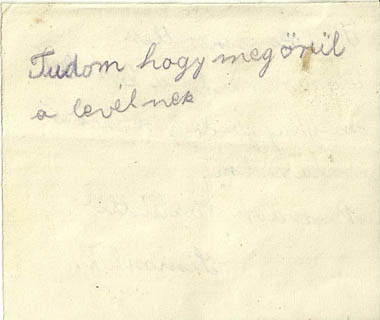 Tudom hogy megörül
a levélnek